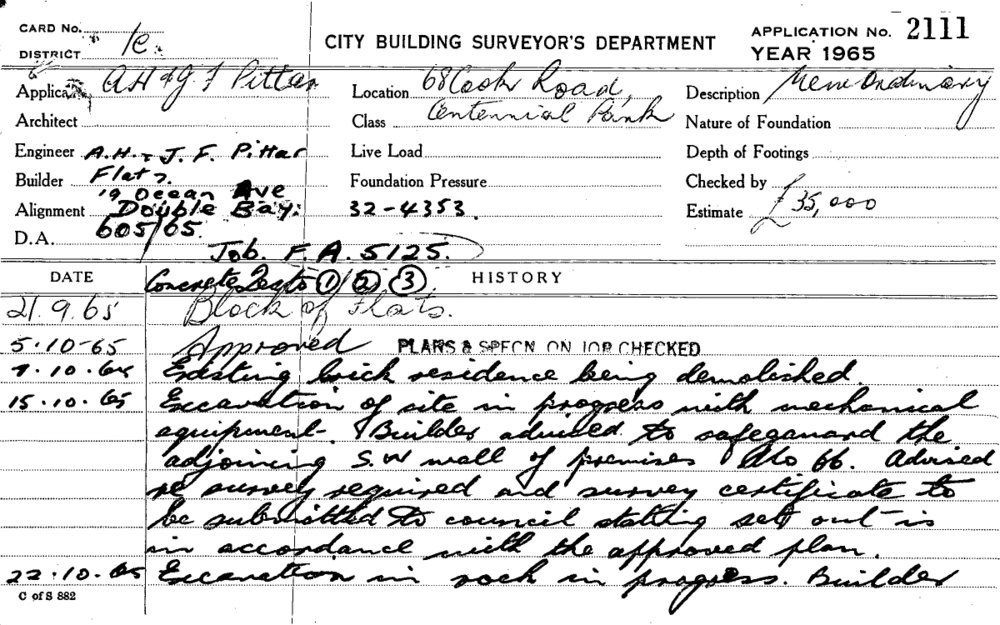 CARD No.
DISTRICT 1c.
CITY BUILDING SURVEYOR'S DEPARTMENT
APPLICATION No. 2111
YEAR 1965
Applica A.H & J F Pittar
Location 68 Cook Road,
Centennial Park
Description New Ordinary
Architect
Class
Nature of Foundation
Engineer A.H. & J. F. Pittar
Live Load
Depth of Footings
Builder Flat 7.
19 Ocean Ave
Foundation Pressure
Checked by
Alignment Double Bay:
32-4353.
Estimate £35,000
D.A. 605/65.
Job. F.A. 5125.
DATE
Concrete Tests 1 2 3
HISTORY
21.9.65 Block of Flats.
5.10-65 Approved PLANS & SPECN ON JOB CHECKED
7.10.65 Existing brick residence being demolished.
15.10.65 Excavation of site in progress with mechanical
equipment. Builder advised to safeguard the
adjoining S.W wall of premises No 66. Advised
re survey required and survey certificate to
be submitted to council stating set out is
in accordance with the approved plan.
22.10.65 Excavation in rock in progress. Builder
C of S 882